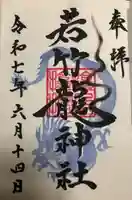 奉拝
若竹龍神社
令和七年六月十四日